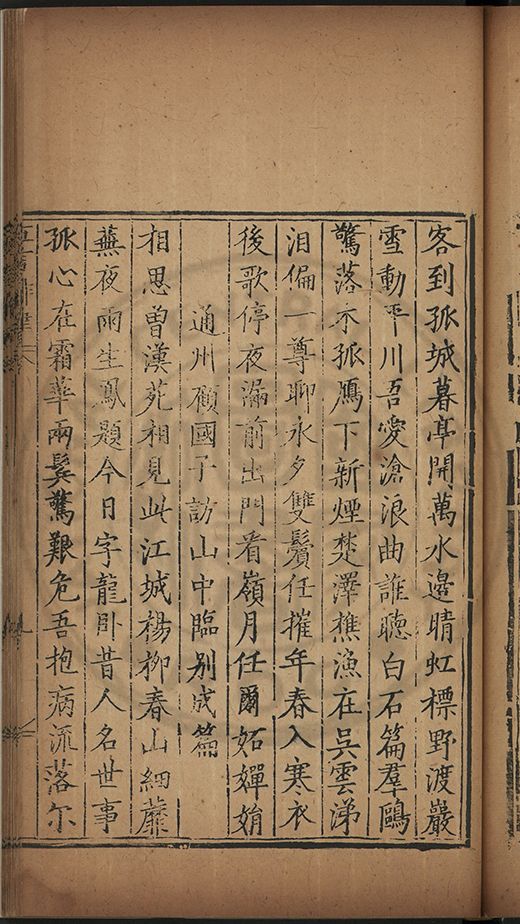 客到孤城暮亭開萬水邊晴虹標野渡巖
雪動平川吾愛滄浪曲誰聽白石篇羣鷗
驚落木孤鴈下新煙楚澤樵漁在吳雲涕
泪偏一尊聊永夕雙鬢任摧年春入寒衣
後歌停夜滿前出門看嶺月任爾妬嬋娟
通州顧國子訪山中臨别成篇
相思曾漢苑相見此江城楊柳春山細蘼
蕪夜雨生鳳題今日字龍卧昔人名世事
孤心在霜華兩鬂驚艱危吾抱病流落尔